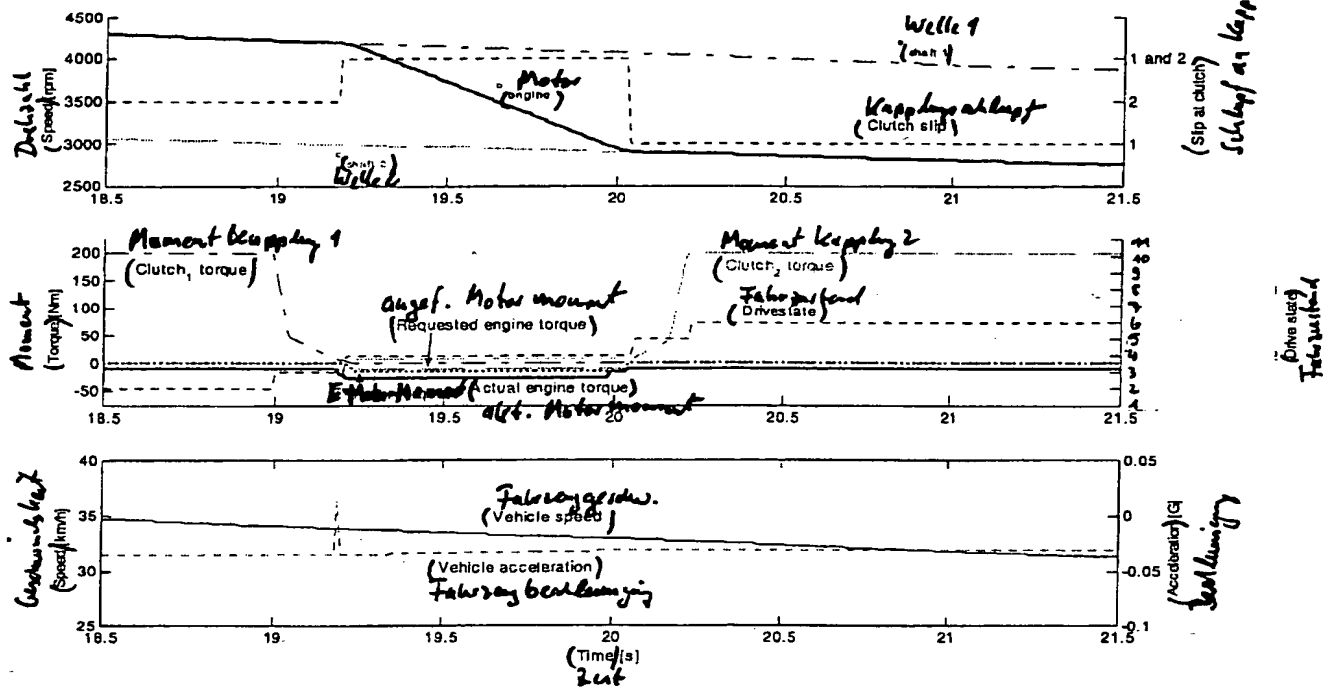 4500
4000
3500
3000
2500
Drehzahl
(Speed)[rpm]
Welle 1
(shaft 1)
Motor
(engine)
Kupplungsschlupf
(Clutch slip)
Welle 2
1 and 2
2
1
(Slip at clutch)
Schlupf an Kupp
18.5 19 19.5 20 20.5 21 21.5
Moment Kupplung 1
(Clutch1 torque)
Moment Kupplung 2
(Clutch2 torque)
angef. Motormoment
(Requested engine torque)
Fahrzustand
(Drivestate)
E-Motor Moment (Actual engine torque)
akt. Motormoment
200
150
100
50
0
-50
Moment
(Torque)[Nm]
11
10
9
8
7
6
5
4
3
2
1
(Drive state)
Fahrzustand
18.5 19 19.5 20 20.5 21 21.5
40
35
30
25
Geschwindigkeit
(Speed)[km/h]
Fahrzeuggeschw.
(Vehicle speed)
(Vehicle acceleration)
Fahrzeugbeschleunigung
0.05
0
-0.05
-0.1
(Acceleration)[G]
Beschleunigung
18.5 19 19.5 20 20.5 21 21.5
(Time)[s]
Zeit